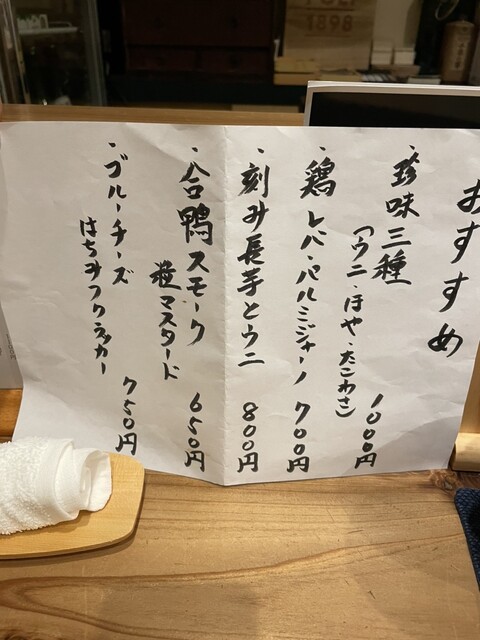 おすすめ
・珍味三種
(ウニ・ほや・たこわさ)
1000円
・鶏レバーパルミジャーノ 700円
・刻み長芋とウニ 800円
・合鴨スモーク
粒マスタード
650円
・ブルーチーズ
はちみつクラッカー
750円
1898